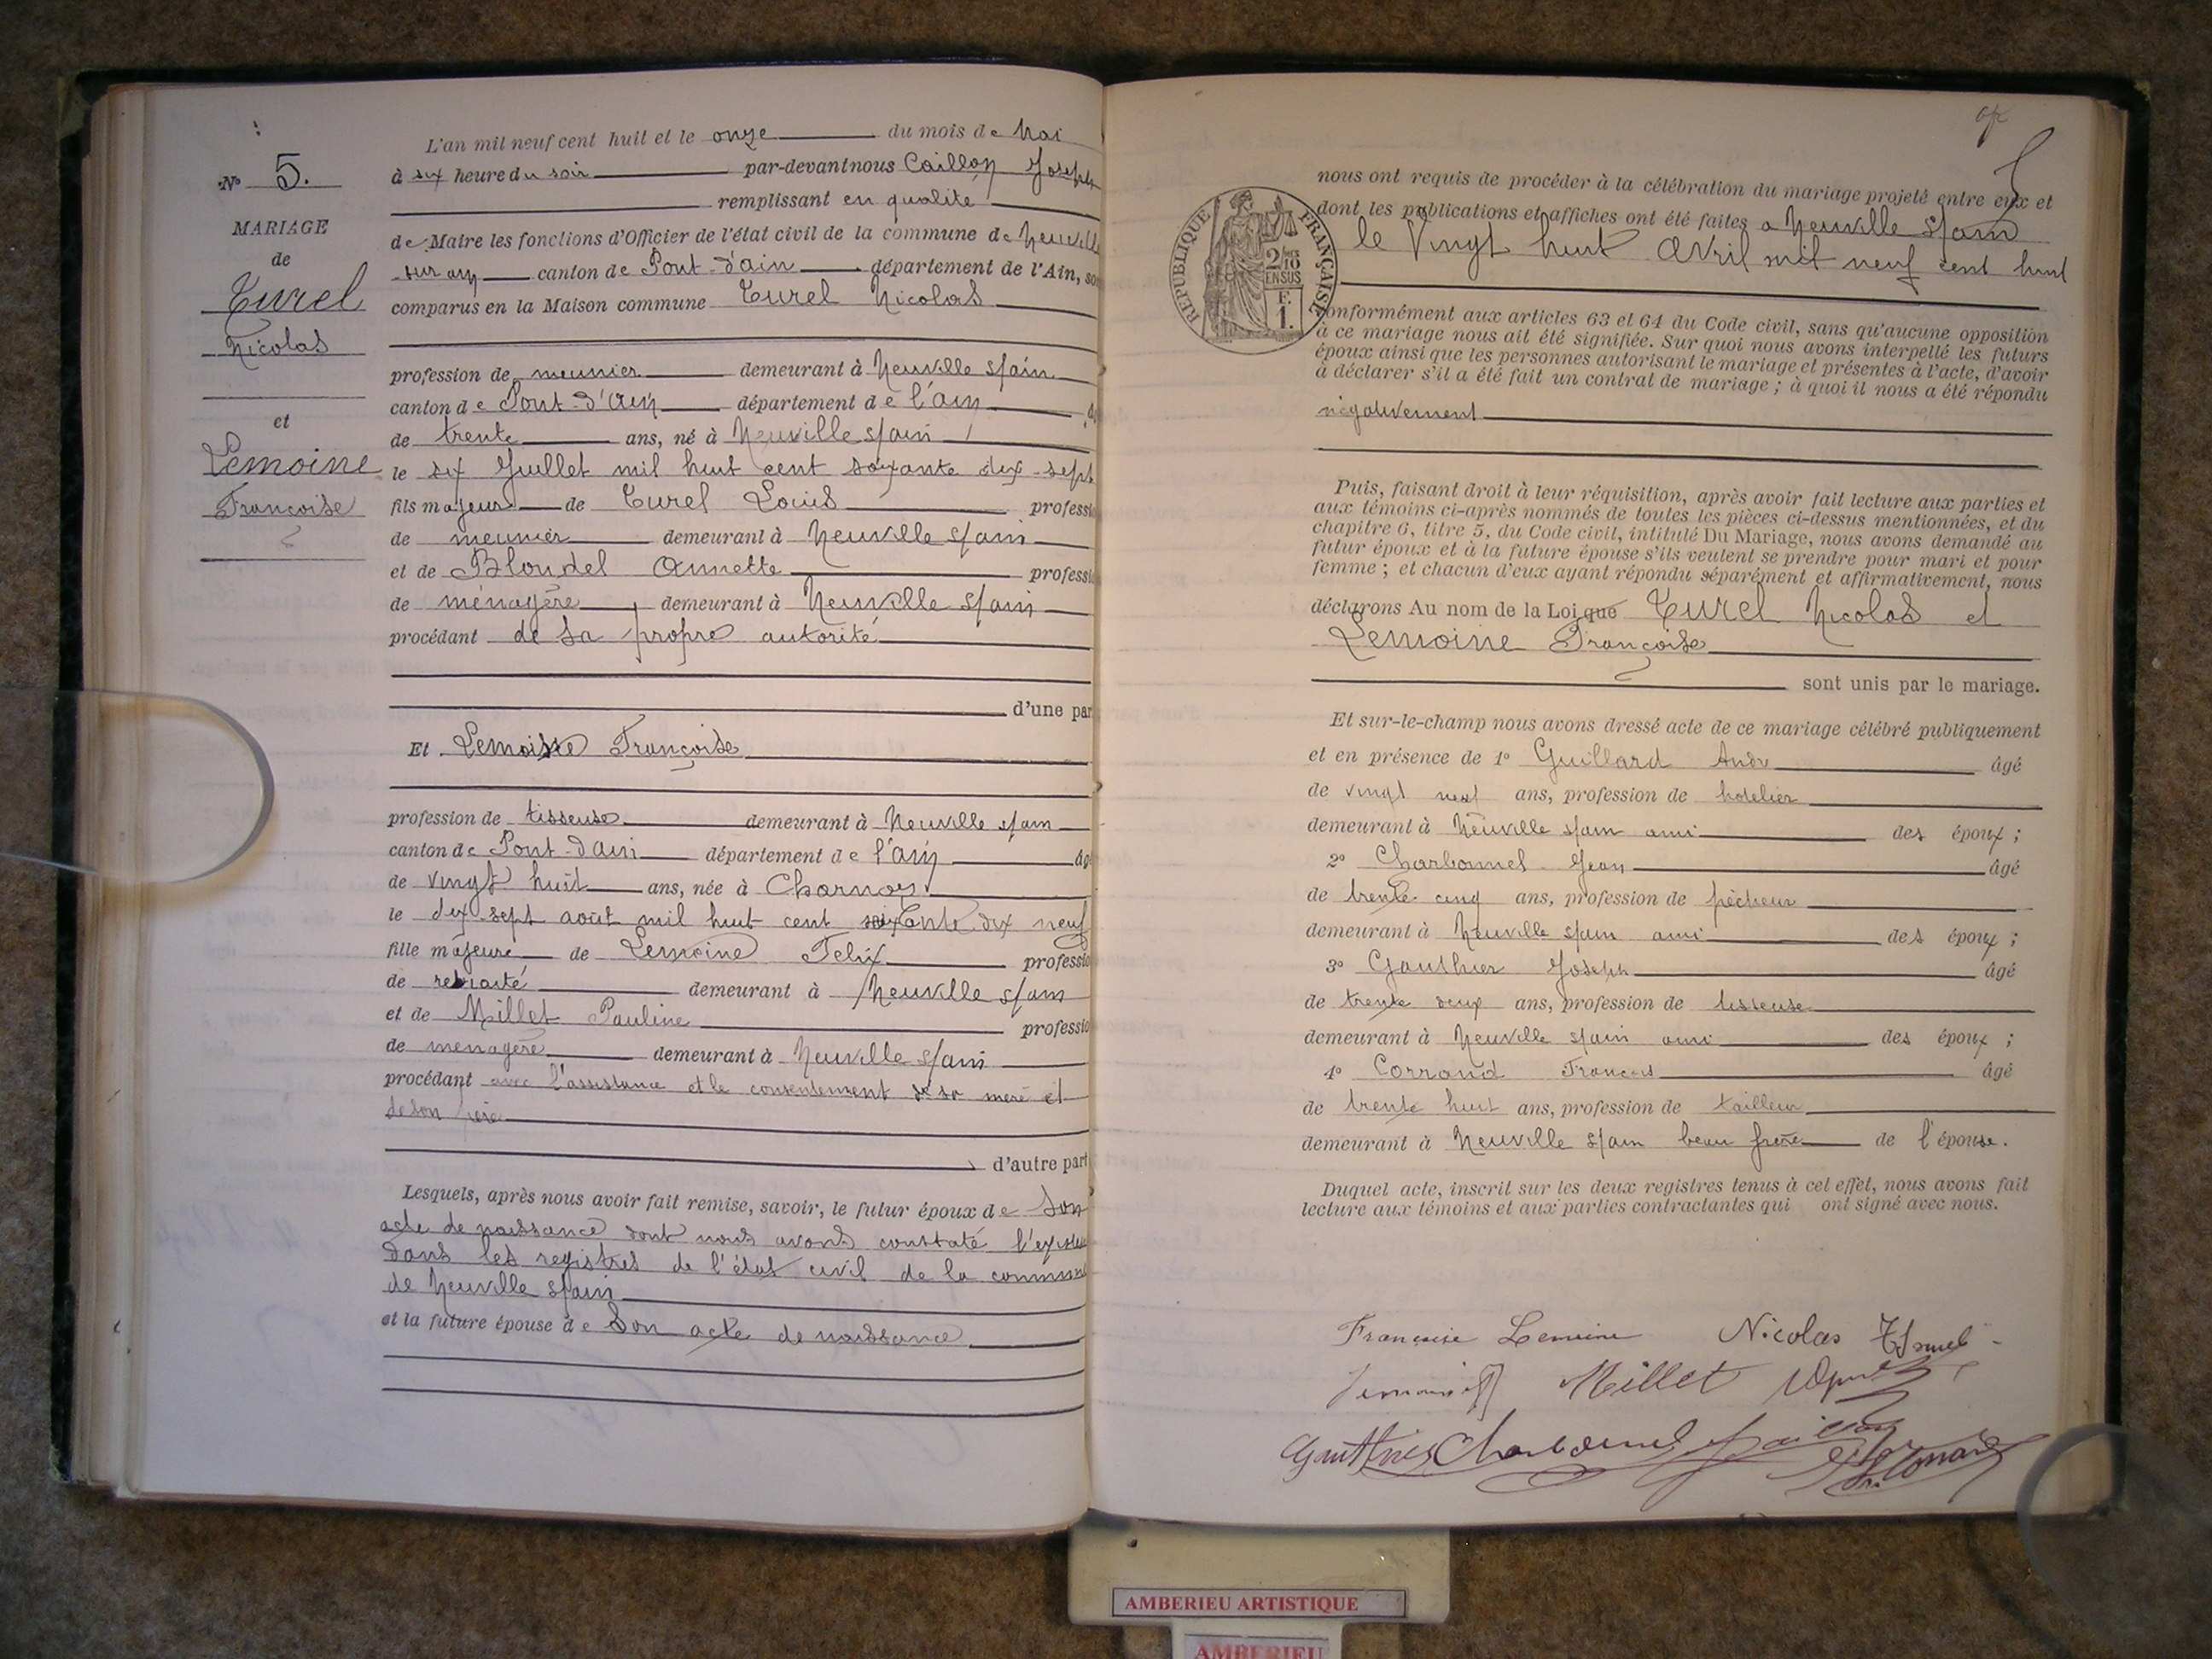 N° 5.
MARIAGE
de
Turel
Nicolas
et
Lemoine
Françoise
L'an mil neuf cent huit et le onze du mois de Mai
à six heure du soir par-devant nous Caillon Joseph
remplissant en qualité
de Maire les fonctions d'Officier de l'état civil de la commune de Neuville
sur ain canton de Pont-d'ain département de l'Ain, so
comparus en la Maison commune Turel Nicolas
profession de meunier demeurant à Neuville s/ain
canton de Pont-d'ain département de l'ain
de trente ans, né à Neuville s/ain
le six Juillet mil huit cent soixante dix-sept
fils majeur de Turel Louis professi
de meunier demeurant à Neuville s/ain
et de Blondel Annette professi
de ménagère demeurant à Neuville s/ain
procédant de sa propre autorité
d'une par
Et Lemoine Françoise
profession de tisseuse demeurant à Neuville s/ain
canton de Pont-d'ain département de l'ain âg
de vingt huit ans, née à Charnoz
le dix-sept août mil huit cent soixante dix neuf
fille majeure de Lemoine Felix professio
de retraité demeurant à Neuville s/ain
et de Millet Pauline professio
de menagère demeurant à Neuville s/ain
procédant avec l'assistance et le consentement de sa mère et
de son père
d'autre part
Lesquels, après nous avoir fait remise, savoir, le futur époux de son
acte de naissance dont nous avons constaté l'existe
dans les registres de l'état civil de la commune
de Neuville s/ain
et la future épouse de son acte de naissance
5
RÉPUBLIQUE FRANÇAISE
2/10 EN SUS
F. 1.
nous ont requis de procéder à la célébration du mariage projeté entre eux et
dont les publications et affiches ont été faites a Neuville s/ain
le vingt huit avril mil neuf cent huit
conformément aux articles 63 et 64 du Code civil, sans qu'aucune opposition
à ce mariage nous ait été signifiée. Sur quoi nous avons interpellé les futurs
époux ainsi que les personnes autorisant le mariage et présentes à l'acte, d'avoir
à déclarer s'il a été fait un contrat de mariage ; à quoi il nous a été répondu
négativement
Puis, faisant droit à leur réquisition, après avoir fait lecture aux parties et
aux témoins ci-après nommés de toutes les pièces ci-dessus mentionnées, et du
chapitre 6, titre 5, du Code civil, intitulé Du Mariage, nous avons demandé au
futur époux et à la future épouse s'ils veulent se prendre pour mari et pour
femme ; et chacun d'eux ayant répondu séparément et affirmativement, nous
déclarons Au nom de la Loi que Turel Nicolas et
Lemoine Françoise
sont unis par le mariage.
Et sur-le-champ nous avons dressé acte de ce mariage célébré publiquement
et en présence de 1° Guillard Andr âgé
de vingt neuf ans, profession de hotelier
demeurant à Neuville s/ain ami des époux ;
2° Charbonnel Jean âgé
de trente cinq ans, profession de pêcheur
demeurant à Neuville s/ain ami des époux ;
3° Gauthier Joseph âgé
de trente deux ans, profession de tisseuse
demeurant à Neuville s/ain ami des époux ;
4° Corrand Francois âgé
de trente huit ans, profession de tailleur
demeurant à Neuville s/ain beau frère de l'épouse.
Duquel acte, inscrit sur les deux registres tenus à cet effet, nous avons fait
lecture aux témoins et aux parties contractantes qui ont signé avec nous.
Françoise Lemoine Nicolas
Millet
Gauthier Charbonnel
AMBERIEU ARTISTIQUE
AMBERIEU